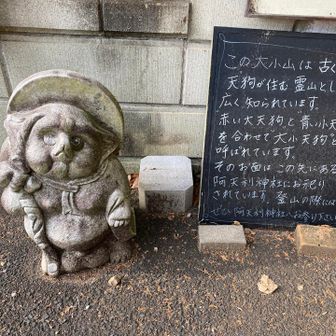 この大小山は古
天狗が住む霊山とし
広く知られています。
赤い大天狗と青小天
を合わせて大小天狗と
呼ばれています。
そのお面はこの先にある
阿夫利神社にお祀り
されています。登山の際には
ぜひ阿夫利神社へお参り下さい